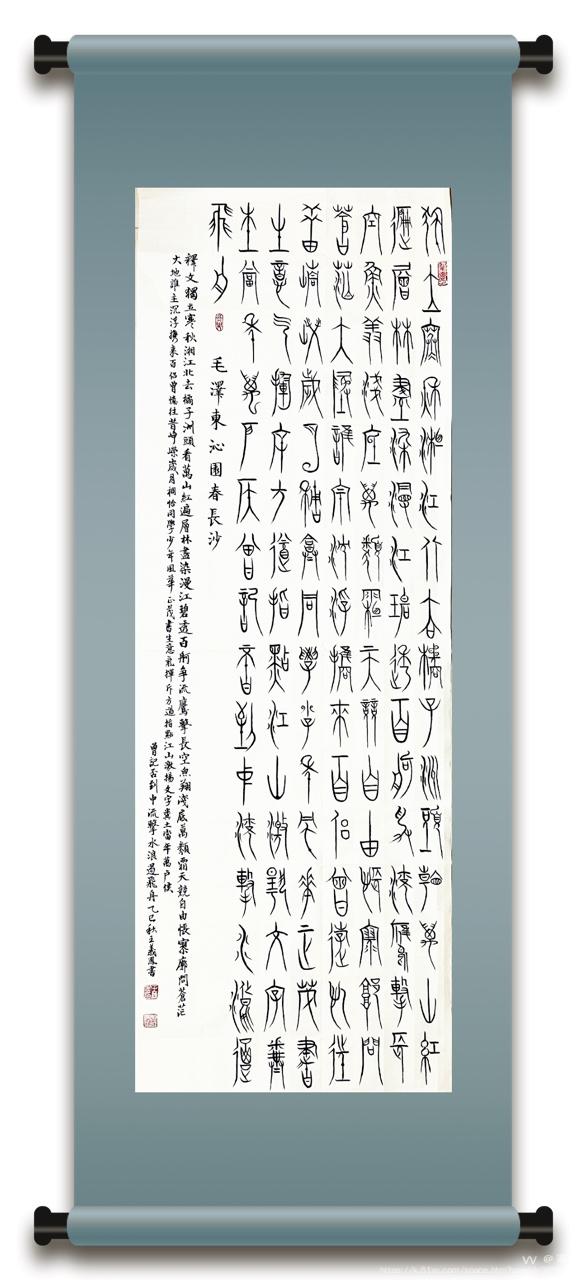 獨立寒秋湘江北去橘子洲頭看萬山紅
遍層林盡染漫江碧透百舸爭流鷹擊長
空魚翔淺底萬類霜天競自由悵寥廓問
蒼茫大地誰主沉浮攜來百侶曾遊憶往
昔崢嶸歲月稠恰同學少年風華正茂書
生意气揮斥方遒指點江山激揚文字糞
土當年萬戶侯曾記否到中流擊水浪遏
飛舟
毛澤東沁園春長沙
釋文獨立寒秋湘江北去橘子洲頭看萬山紅遍層林盡染漫江碧透百舸爭流鷹擊長空魚翔淺底萬類霜天競自由悵寥廓問蒼茫
大地誰主沉浮攜来百侣曾憶往昔崢嶸歲月稠恰同學少年風華正茂書生意氣揮斥方遒指點江山激揚文字糞土當年萬户侯
曾記否到中流擊水浪遏飛舟乙巳秋王義書